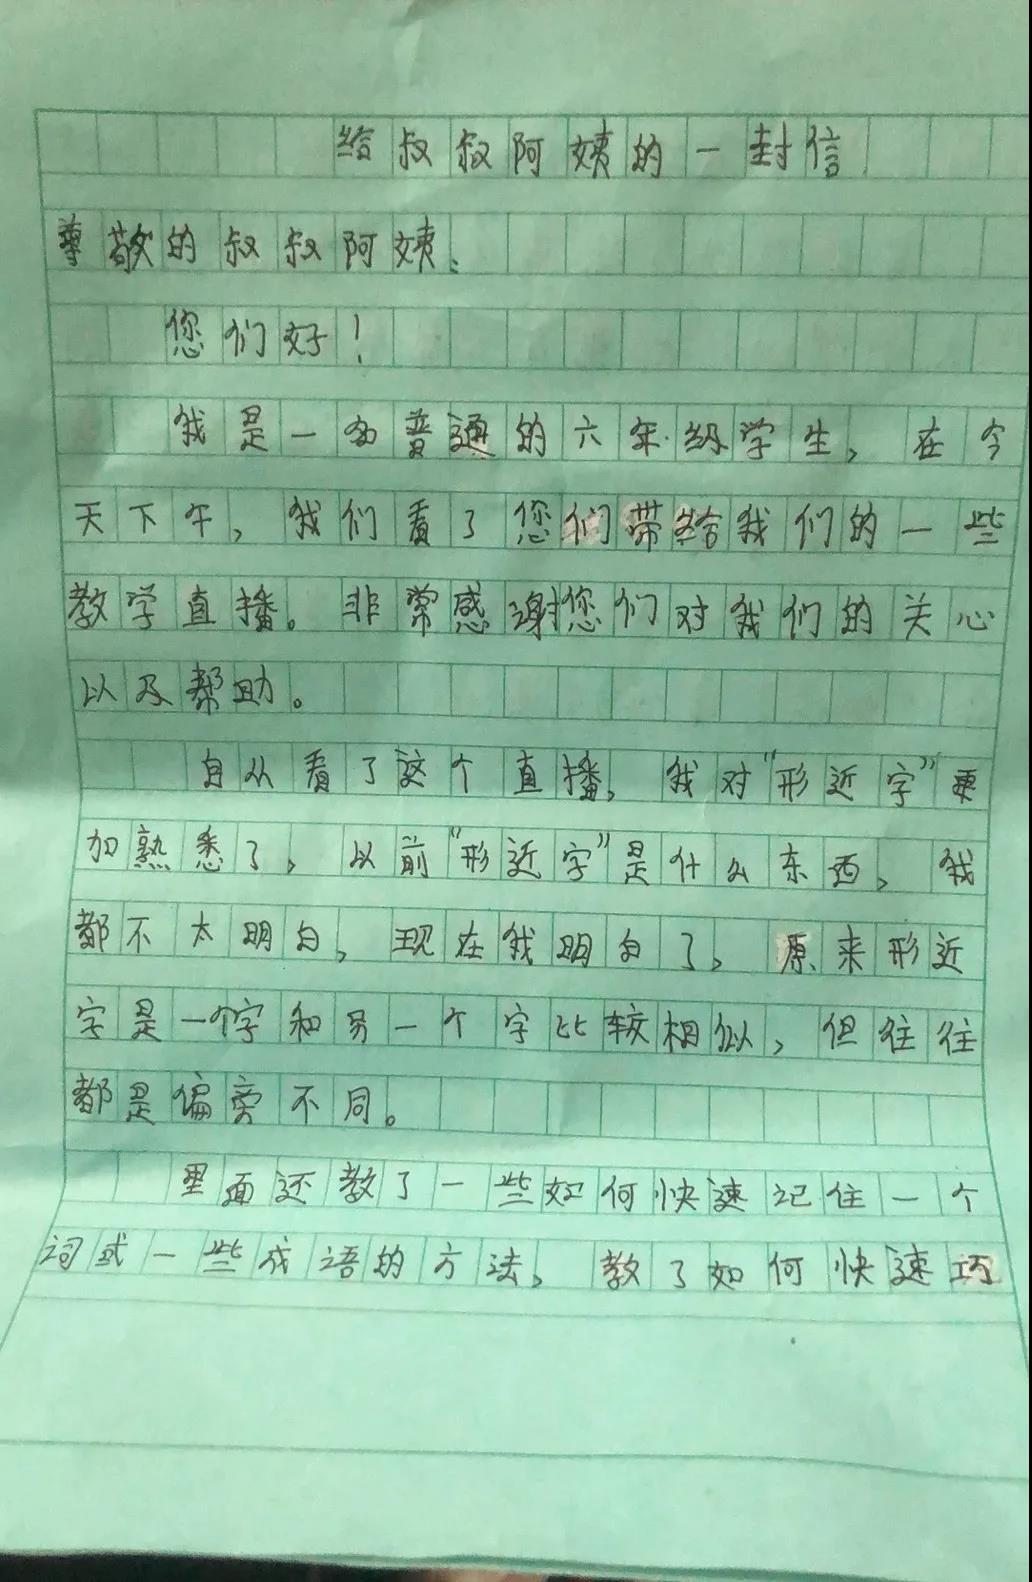 给叔叔阿姨的一封信
尊敬的叔叔阿姨:
您们好!
我是一名普通的六年级学生,在今
天下午,我们看了您们带给我们的一些
教学直播。非常感谢您们对我们的关心
以及帮助。
自从看了这个直播,我对“形近字”更
加熟悉了,以前“形近字”是什么东西,我
都不太明白,现在我明白了,原来形近
字是一个字和另一个字比较相似,但往往
都是偏旁不同。
里面还教了一些如何快速记住一个
词或一些成语的方法,教了如何快速巧